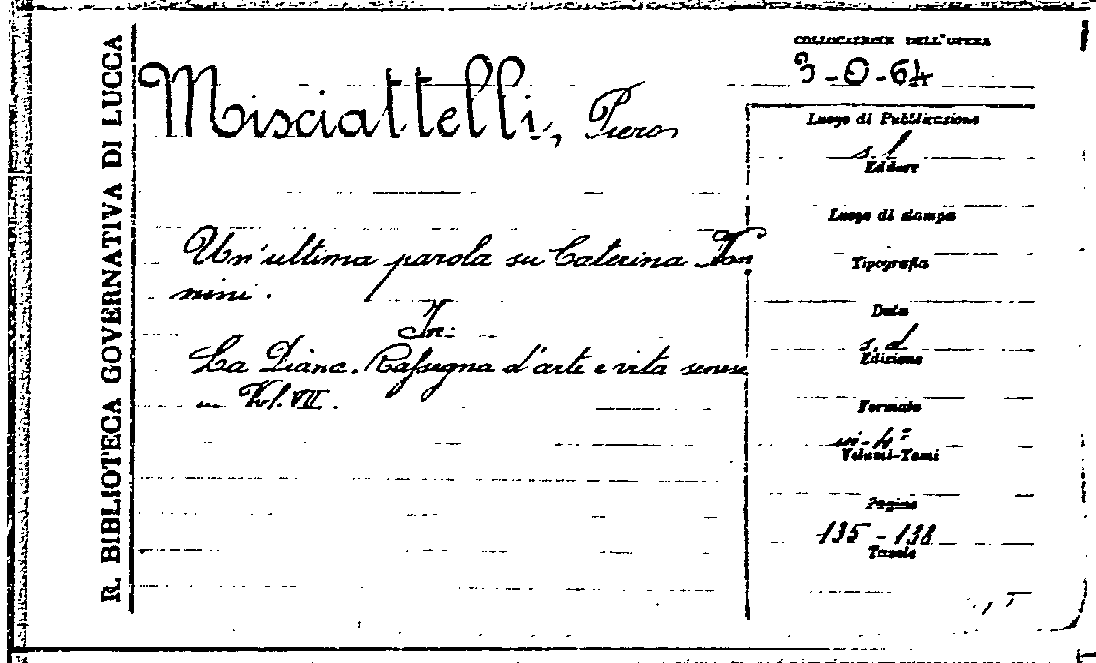 R. BIBLIOTECA GOVERNATIVA DI LUCCA
Misciattelli, Piero
Un'ultima parola su Caterina Van
nini.
In:
La Diana. Rassegna d'arte e vita senese
Vol. VII.
COLLOCAZIONE DELL'OPERA
3-O-64
Luogo di Pubblicazione
s.l
Editore
Luogo di stampa
Tipografia
Data
s.d
Edizione
Formato
in-4º
Volumi-Tomi
Pagine
135-138
Tavole